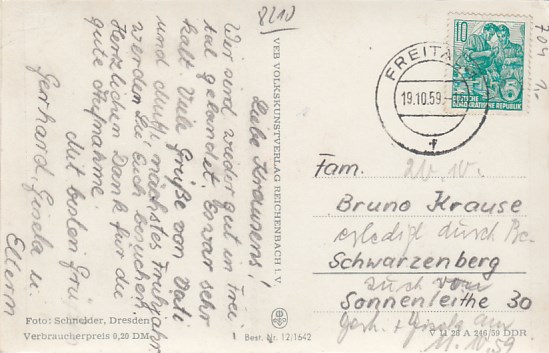 8210
Liebe Krausens!
Wir sind wieder gut in Frei-
tal gelandet. Es war sehr
kalt. Viele Grüße von Vati
und Mutti, nächstes Frühjahr
werden Sie Euch besuchen.
Herzlichen Dank für die
gute Aufnahme.
Mit besten Gru
Gerhard, Gisela u.
Eltern
Foto: Schneider, Dresden
Verbraucherpreis 0,20 DM
VEB VOLKSKUNSTVERLAG REICHENBACH i. V.
Best. Nr. 12/1642
FREITAL
19.10.59
f
10
5
DEUTSCHE
DEMOKRATISCHE REPUBLIK
704
Fam.
Bruno Krause
erledigt durch
Schwarzenberg
Sonnenleithe 30
Gerh. + Gisela am
11.10.59
V 11 28 A 246/59 DDR